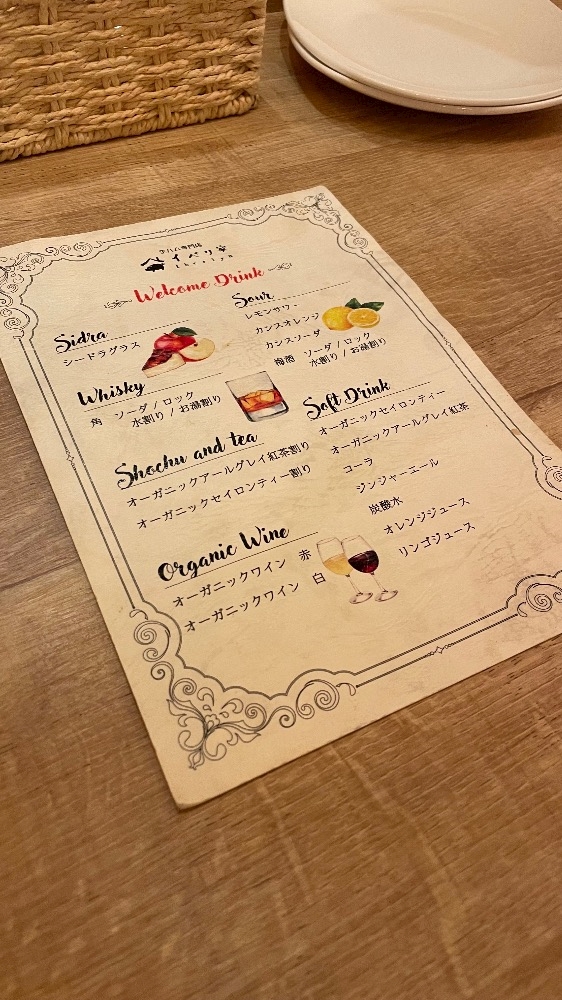 生ハム専門店
イベリ家
Welcome Drink
Sidra
シードラグラス
Whisky
角 ソーダ / ロック
水割り / お湯割り
Shochu and tea
オーガニックアールグレイ紅茶割り
オーガニックセイロンティー割り
Organic Wine
オーガニックワイン 赤
オーガニックワイン 白
Sour
レモンサワー
カシスオレンジ
カシスソーダ
梅酒 ソーダ / ロック
水割り / お湯割り
Soft Drink
オーガニックセイロンティー
オーガニックアールグレイ紅茶
コーラ
ジンジャーエール
炭酸水
オレンジジュース
リンゴジュース